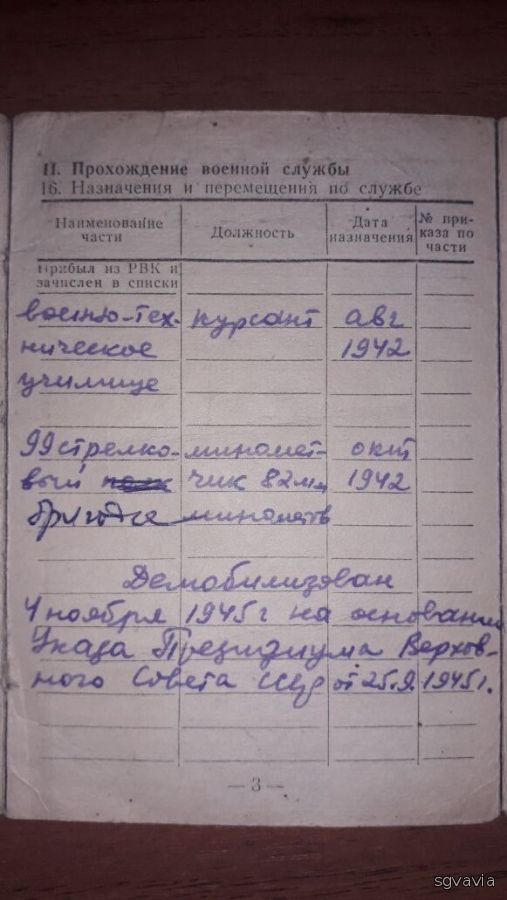 II. Прохождение военной службы
16. Назначения и перемещения по службе
Наименование части
Должность
Дата назначения
№ приказа по части
Прибыл из РВК и
зачислен в списки
военно-тех- курсант авг
ническое 1942
училище
99 стрелко- миномет- окт
вый чик 82 мм 1942
бригада минометов
Демобилизован
4 ноября 1945 г на основании
Указа Президиума Верхов-
ного Совета СССР от 25.9.1945 г.
— 3 —
sgvavia